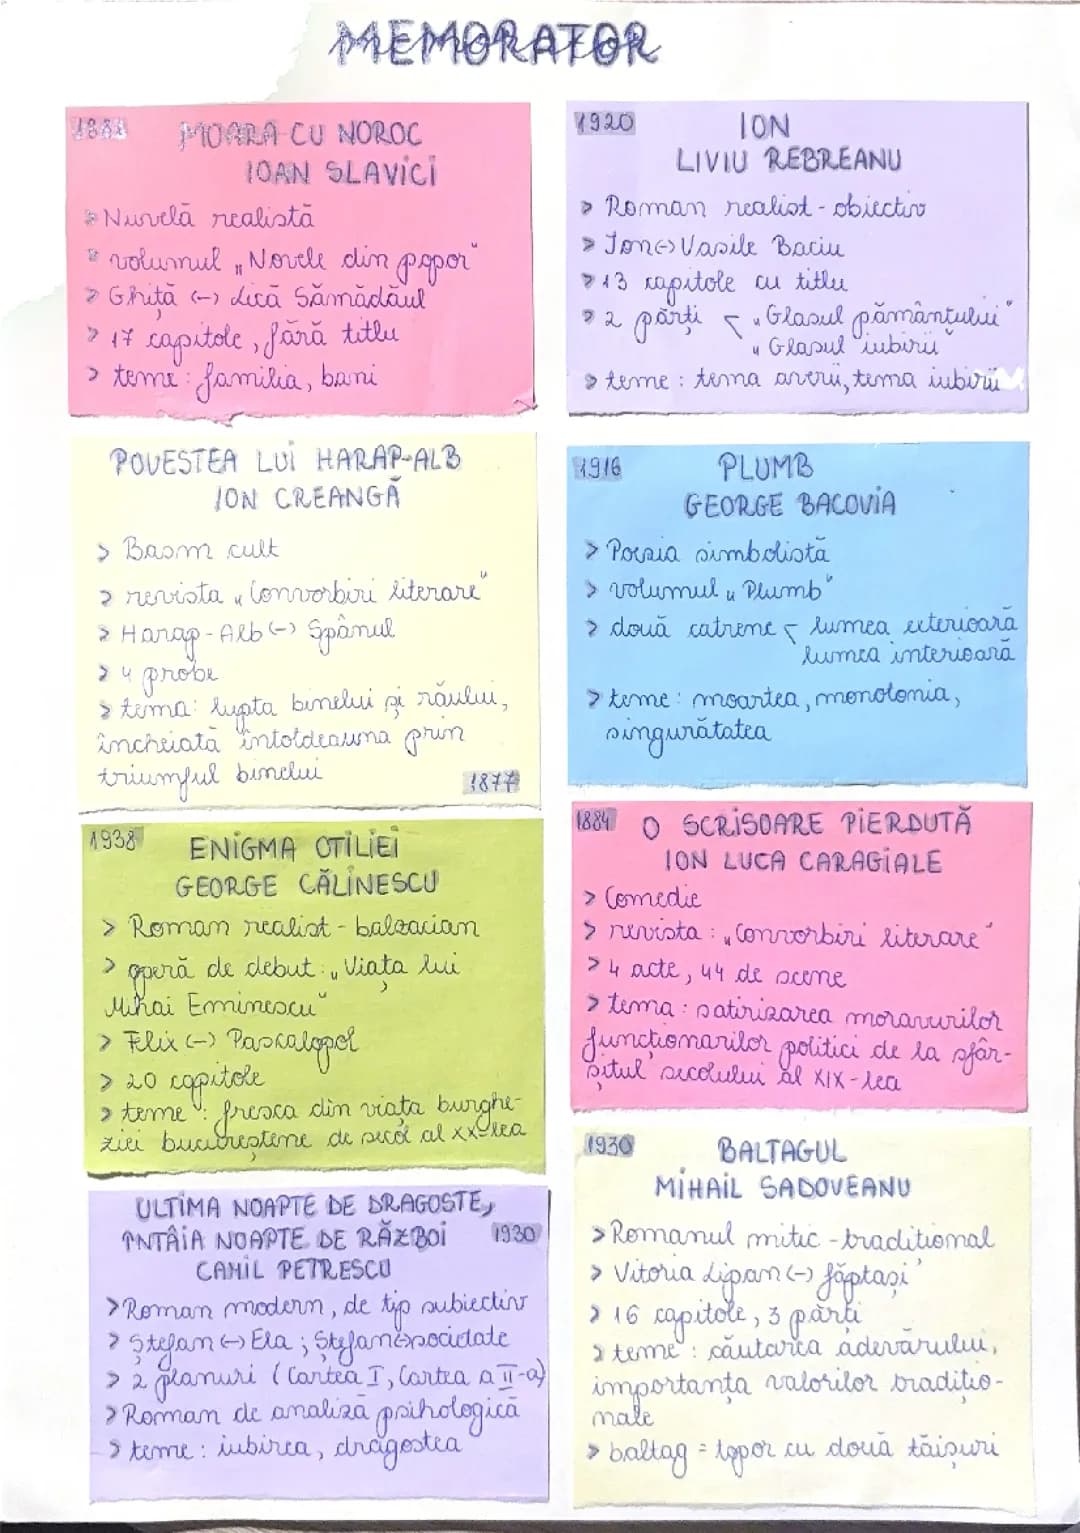 MEMORATOR
1881
MOARA CU NOROC
IOAN SLAVICI
> Nuvelă realistă
> volumul „Novele din popor"
> Ghiță (-) Lică Sămădăul
> 17 capitole, fără titlu
> teme: familia, bani
POVESTEA LUI HARAP-ALB
ION CREANGĂ
> Basm cult
> revista „Convorbiri literare"
> Harap-Alb (-) Spânul
> 4 probe
> tema: lupta binelui și răului,
încheiată întoldeauna prin
triumful binelui
1877
1938
ENIGMA OTILIEI
GEORGE CĂLINESCU
> Roman realist - balzacian
> operă de debut: „Viața lui
Mihai Eminescu"
> Felix (-) Pascalopol
> 20 capitole
> teme: fresca din viața burghe-
ziei bucureștene de secol al XX-lea
ULTIMA NOAPTE DE DRAGOSTE,
ÎNTÂIA NOAPTE DE RĂZBOI 1930
CAMIL PETRESCU
> Roman modern, de tip subiectiv
> Ștefan (-) Ela; Ștefan (-) societate
> 2 planuri (Cartea I, Cartea a II-a)
> Roman de analiză psihologică
> teme: iubirea, dragostea
1920
ION
LIVIU REBREANU
> Roman realist - obiectiv
> Ion (-) Vasile Baciu
> 13 capitole cu titlu
> 2 părți < „Glasul pământului"
„Glasul iubirii"
> teme: tema averii, tema iubirii
1916
PLUMB
GEORGE BACOVIA
> Poezia simbolistă
> volumul „Plumb"
> două catrene < lumea exterioară
lumea interioară
> teme: moartea, monotonia,
singurătatea
1884
O SCRISOARE PIERDUTĂ
ION LUCA CARAGIALE
> Comedie
> revista: „Convorbiri literare"
> 4 acte, 44 de scene
> tema: satirizarea moravurilor
funcționarilor politici de la sfâr-
șitul secolului al XIX-lea
1930
BALTAGUL
MIHAIL SADOVEANU
> Romanul mitic - tradițional
> Vitoria Lipan (-) făptași
> 16 capitole, 3 părți
> teme: căutarea adevărului,
importanța valorilor tradițio-
nale
> baltag = topor cu două tăișuri